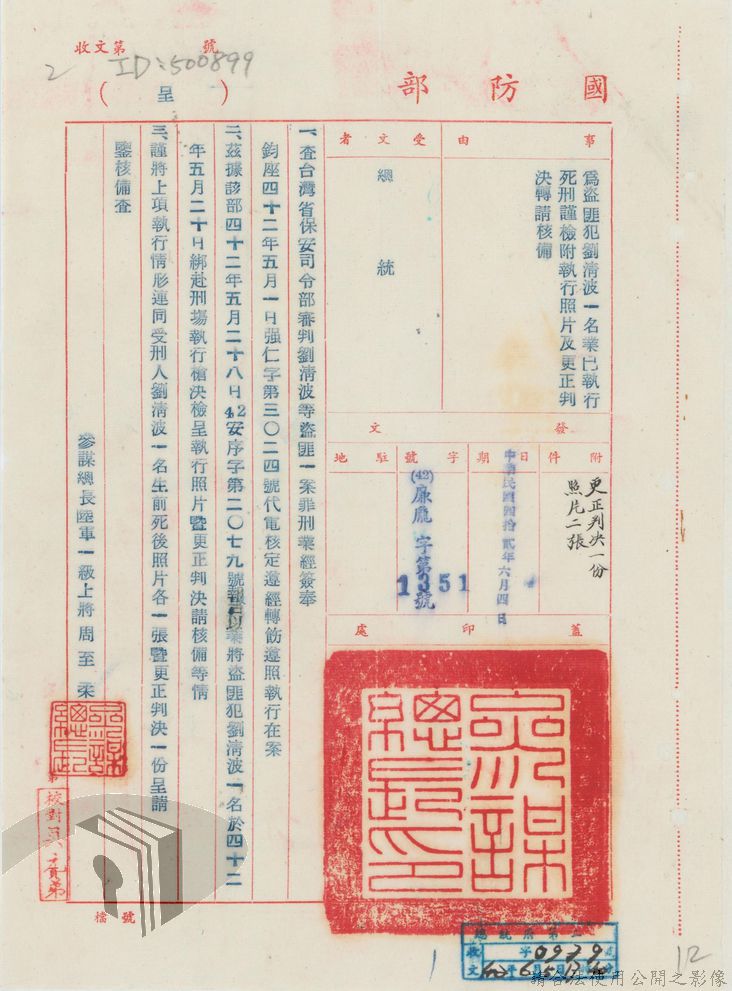 收文第　　號
2 ID:500899
國防部
（呈）
事由
為盜匪犯劉清波一名業已執行
死刑謹檢附執行照片及更正判
決轉請核備
受文者
總統
發文
附件
更正判決一份
照片二張
日期
中華民國四拾貳年六月四日
字號
(42)廉龐字第1351號
駐地
蓋印處
參謀總長印
一、查台灣省保安司令部審判劉清波等盜匪一案罪刑業經簽奉
鈞座四十二年五月一日强仁字第三〇二四號代電核定遵經轉飭遵照執行在案
二、茲據該部四十二年五月二十八日42安序字第二〇七九號報以業將盜匪犯劉清波一名於四十二
年五月二十日綁赴刑場執行槍決檢呈執行照片暨更正判決請核備等情
三、謹將上項執行情形連同受刑人劉清波一名生前死後照片各一張暨更正判決一份呈請
鑒核備查
參謀總長陸軍一級上將周至柔
參謀總長
校對
檔號
收文
字0979
1
12
請合法使用公開之影像